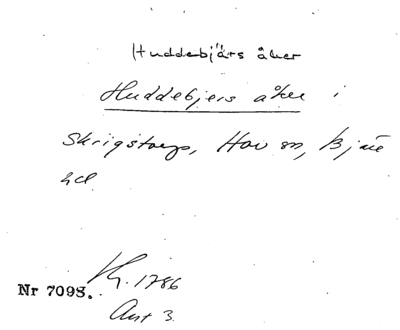 Huddebjärs åker
Huddebjers åker i
Skrigstorp, Hov sn, Bjäre
hd
Nr 7098. 1786
Akt 3.